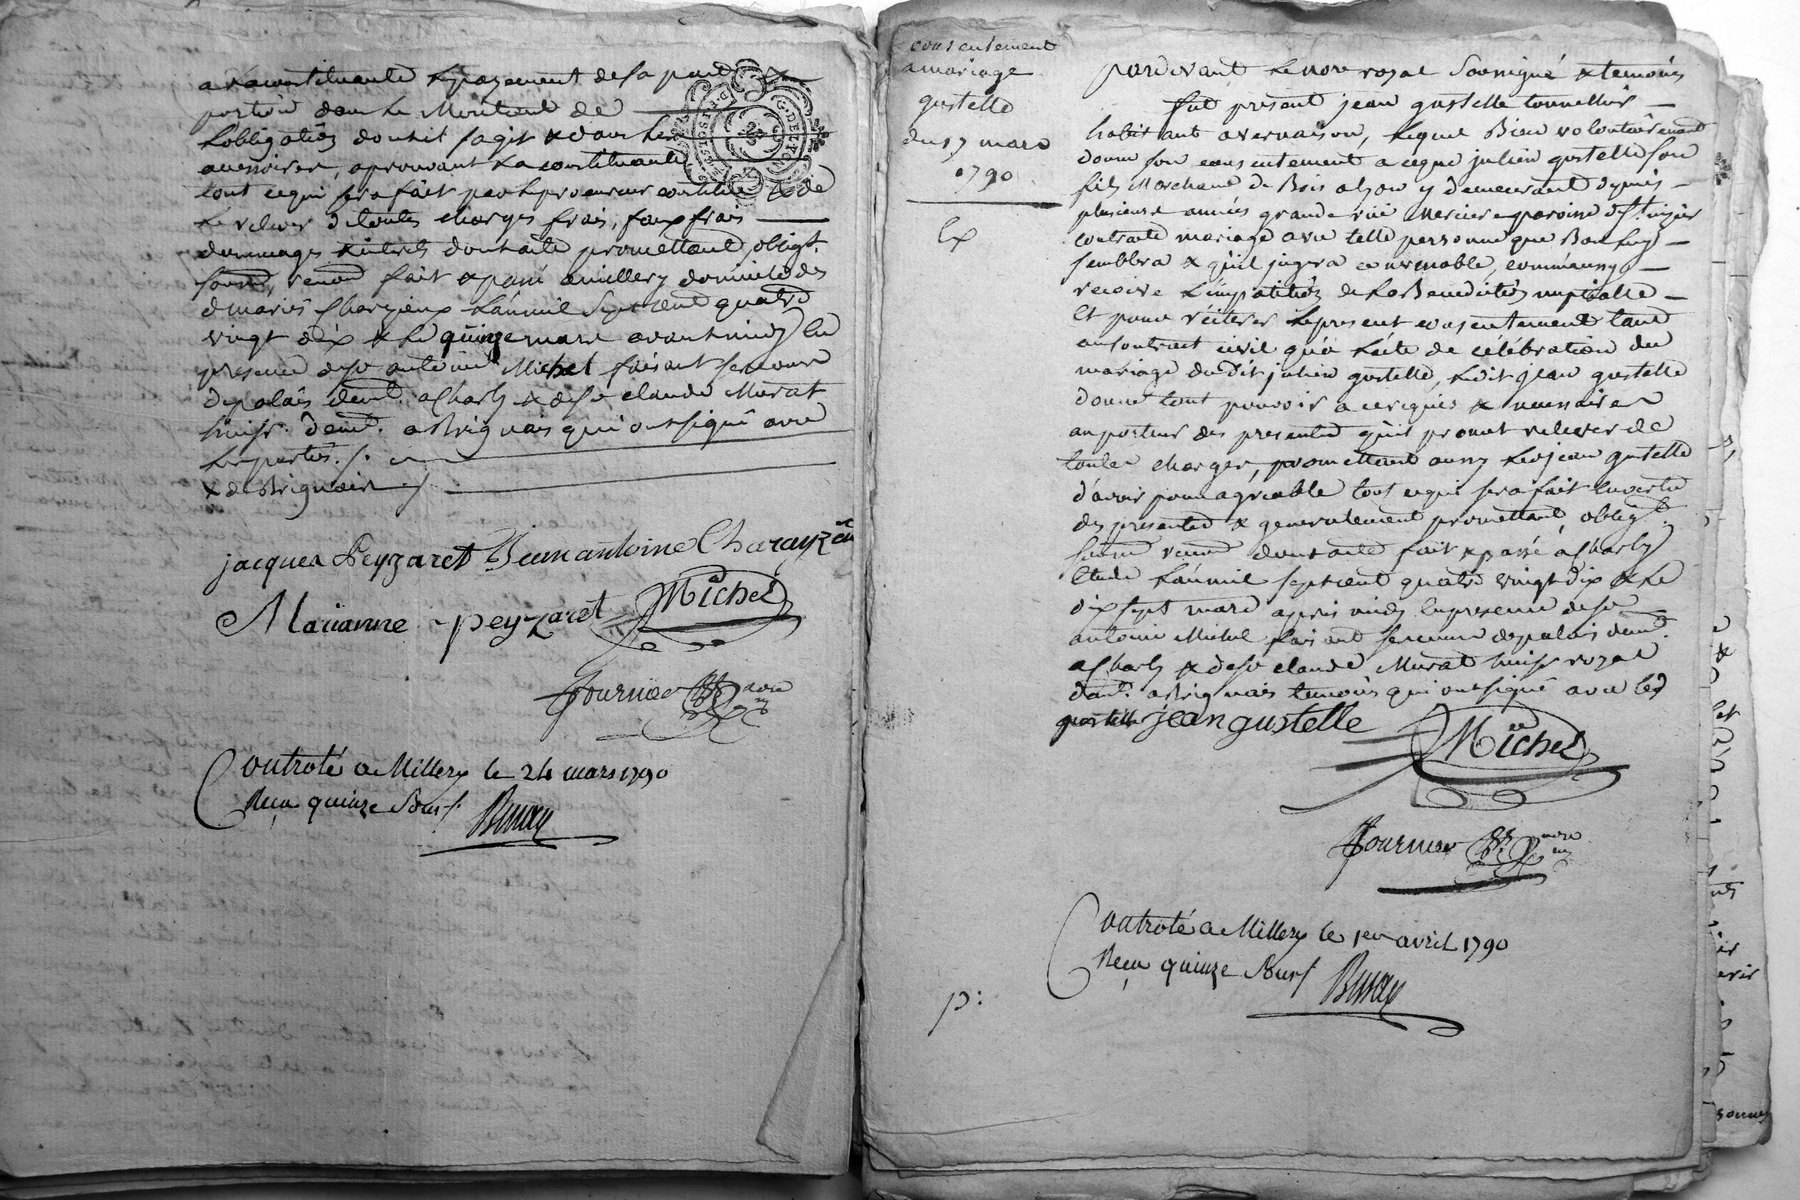 a la constituante le payement de sa part &
portion dans le Montant de
Lobligation dont il sagit & dans les
accessoires, aprouvant la constituante
tout ce qui sera fait par le procureur constitué & de
le relever de toutes charges frais, faux frais
dommages & interets dont acte promettant obligt.
soumt, renont fait & passé a millery domicile des
de mariés Charezieux Lan mil sept cent quatre
vingt dix & le quinze mars avant midy en
presence de sr antoine Michel faisant
de palais demt. a Charly & de sr claude Murat
huissr. demt. a Brignais qui ont signé avec
les parties ./.
& de Brignais ./.
jacques Peyzaret Jeanantoine Charayzieu
Marianne peyzaret Michel
fournier nore
Controlé a Millery le 24 mars 1790
Reçu quinze Sous ./. Bruny
consentement
a mariage
gustelle
du 17 mars
1790
Ex
pardevant le nore royal Soussigné & temoins
fut present jean gustelle tonnellier
habitant a vernaison, lequel Bien volontairement
donne son consentement a ce que julien gustelle son
fils Marchand de Bois a lyon y demeurant depuis
plusieurs années grande rue Merciere paroisse de St. nizier
contracte mariage avec telle personne que Bon luy
semblera & quil jugera convenable, comme aussy
recoive Limpartition de la Benediction nuptialle
Et pour réiterer le present consentement tant
au contract civil qua Lacte de celébration du
mariage dudit julien gustelle, ledit jean gustelle
donne tout pouvoir a ce requis & necessaire
au porteur des presentes quil promet relever de
toutes charges, promettant aussy led jean gustelle
d'avoir pour agreable tout ce qui sera fait en vertu
des presentes & generalement promettant, obligt.
soumt renont dont acte fait & passé a Charly
Etude Lan mil sept cent quatre vingt dix & le
dix sept mars apres midy en presence de sr
antoine Michel faisant de palais demt.
a Charly & de sr claude Murat huissr royal
demt. a Brignais temoins qui ont signé avec led
gustelle jean gustelle
Michel
fournier nore
Controlé a Millery le 1er avril 1790
Reçu quinze Sous ./. Bruny
p: